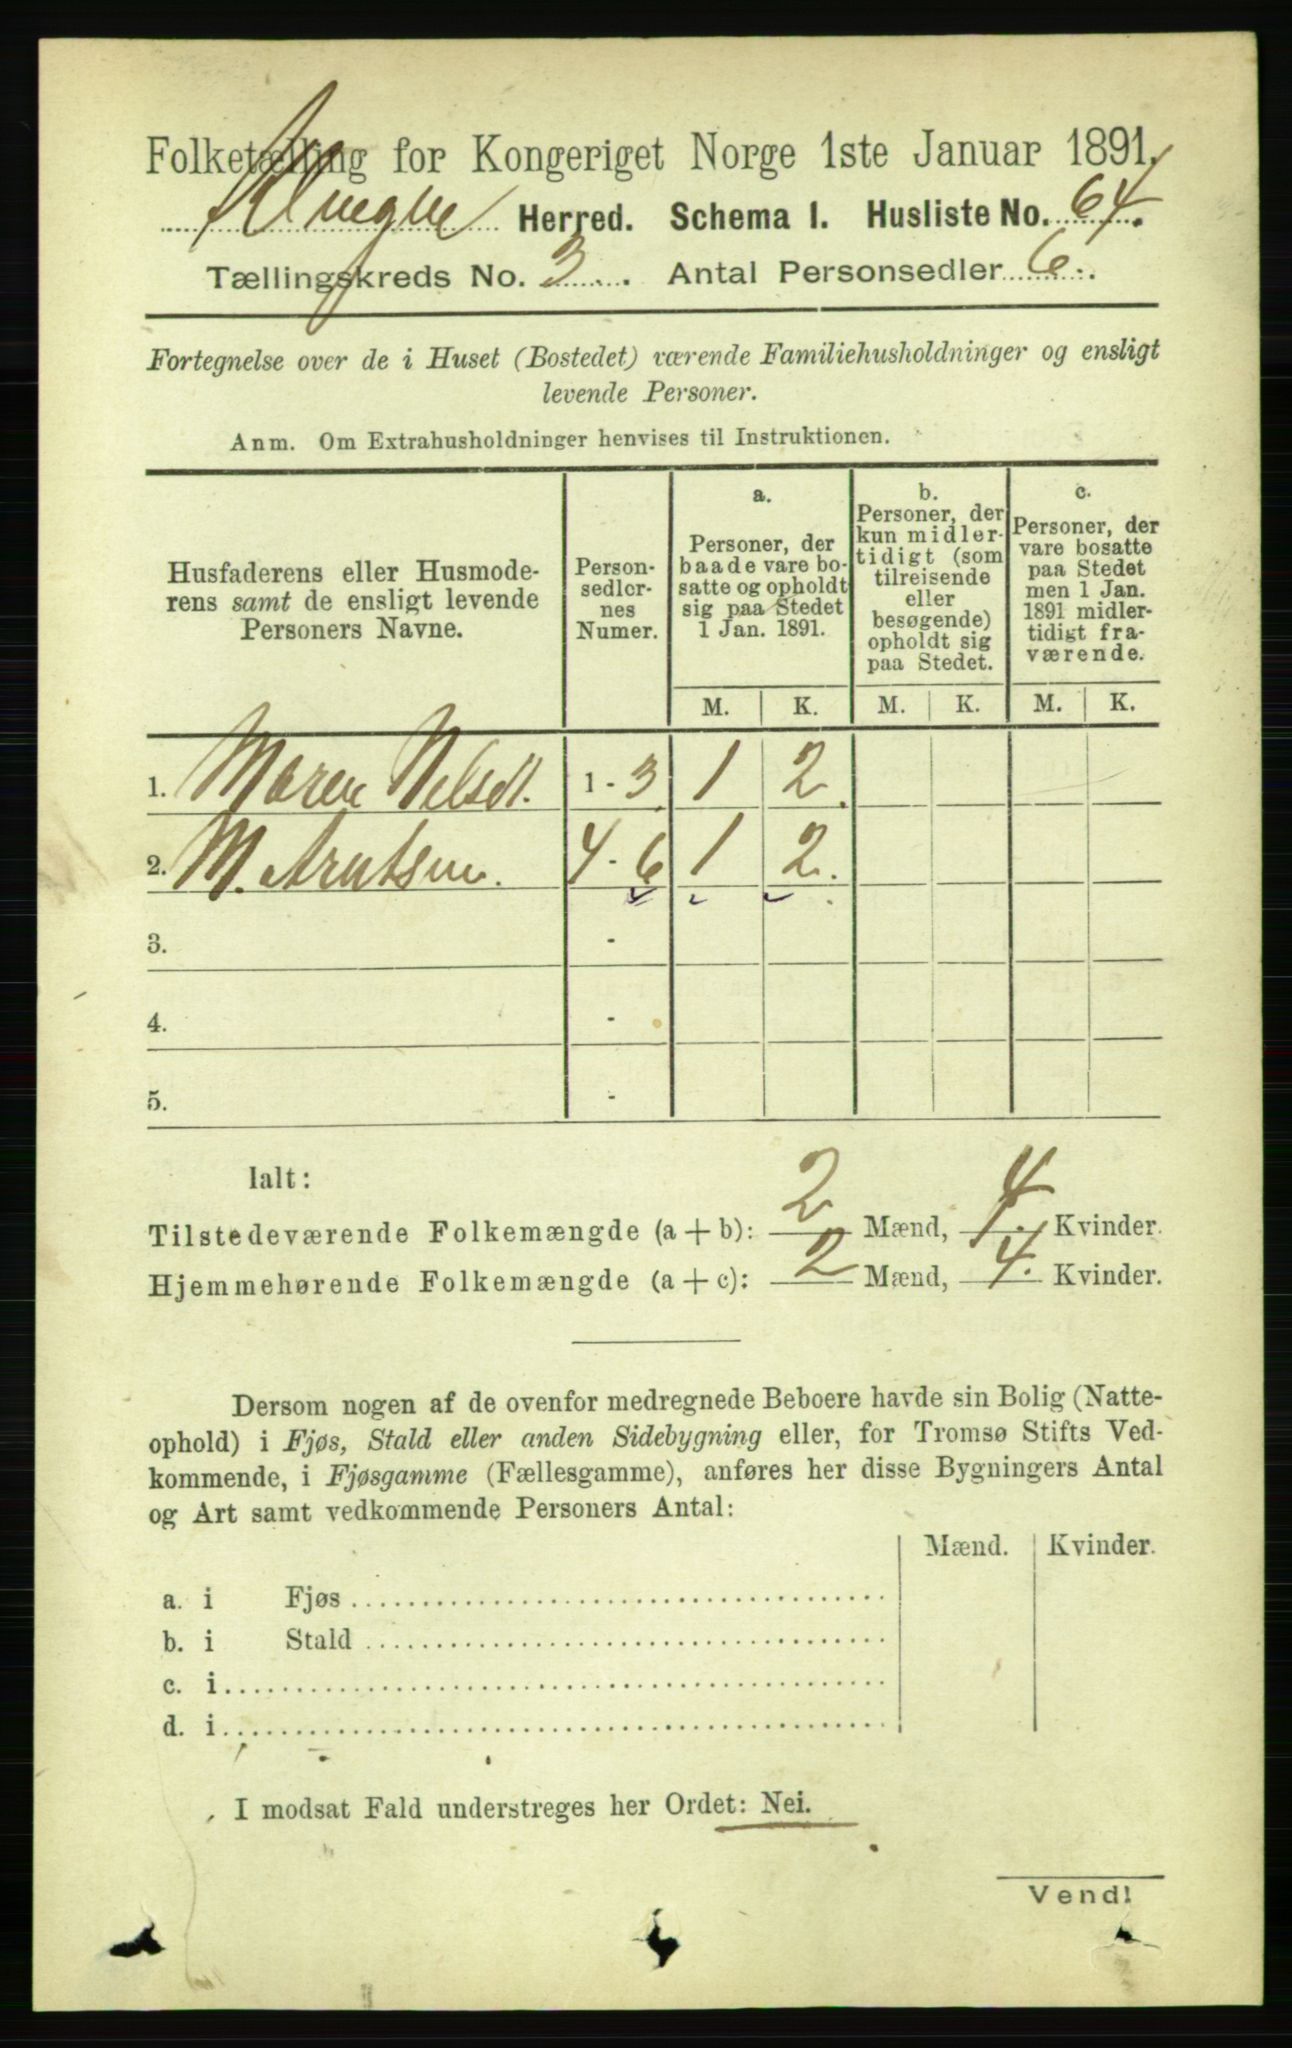 Folketælling for Kongeriget Norge 1ste Januar 1891.
Herred. Schema 1. Husliste No. 64.
Tællingskreds No. 3. Antal Personsedler 6.
Fortegnelse over de i Huset (Bostedet) værende Familiehusholdninger og ensligt
levende Personer.
Anm. Om Extrahusholdninger henvises til Instruktionen.
Husfaderens eller Husmode-
rens samt de ensligt levende
Personers Navne.
Person-
sedler-
nes
Numer.
a.
Personer, der
baade vare bo-
satte og opholdt
sig paa Stedet
1 Jan. 1891.
b.
Personer, der
kun midler-
tidigt (som
tilreisende
eller
besøgende)
opholdt sig
paa Stedet.
c.
Personer, der
vare bosatte
paa Stedet
men 1 Jan.
1891 midler-
tidigt fra-
værende.
M. K. M. K. M. K.
1. Maren 1 - 3 1 2.
2. M. Arntsen. 4 - 6 1 2.
3. -
4. -
5. -
Ialt:
Tilstedeværende Folkemængde (a + b): 2 Mænd, 4 Kvinder.
Hjemmehørende Folkemængde (a + c): 2 Mænd, 4. Kvinder.
Dersom nogen af de ovenfor medregnede Beboere havde sin Bolig (Natte-
ophold) i Fjøs, Stald eller anden Sidebygning eller, for Tromsø Stifts Ved-
kommende, i Fjøsgamme (Fællesgamme), anføres her disse Bygningers Antal
og Art samt vedkommende Personers Antal:
Mænd. Kvinder.
a. i Fjøs
b. i Stald
c. i
d. i
I modsat Fald understreges her Ordet: Nei.
Vend!